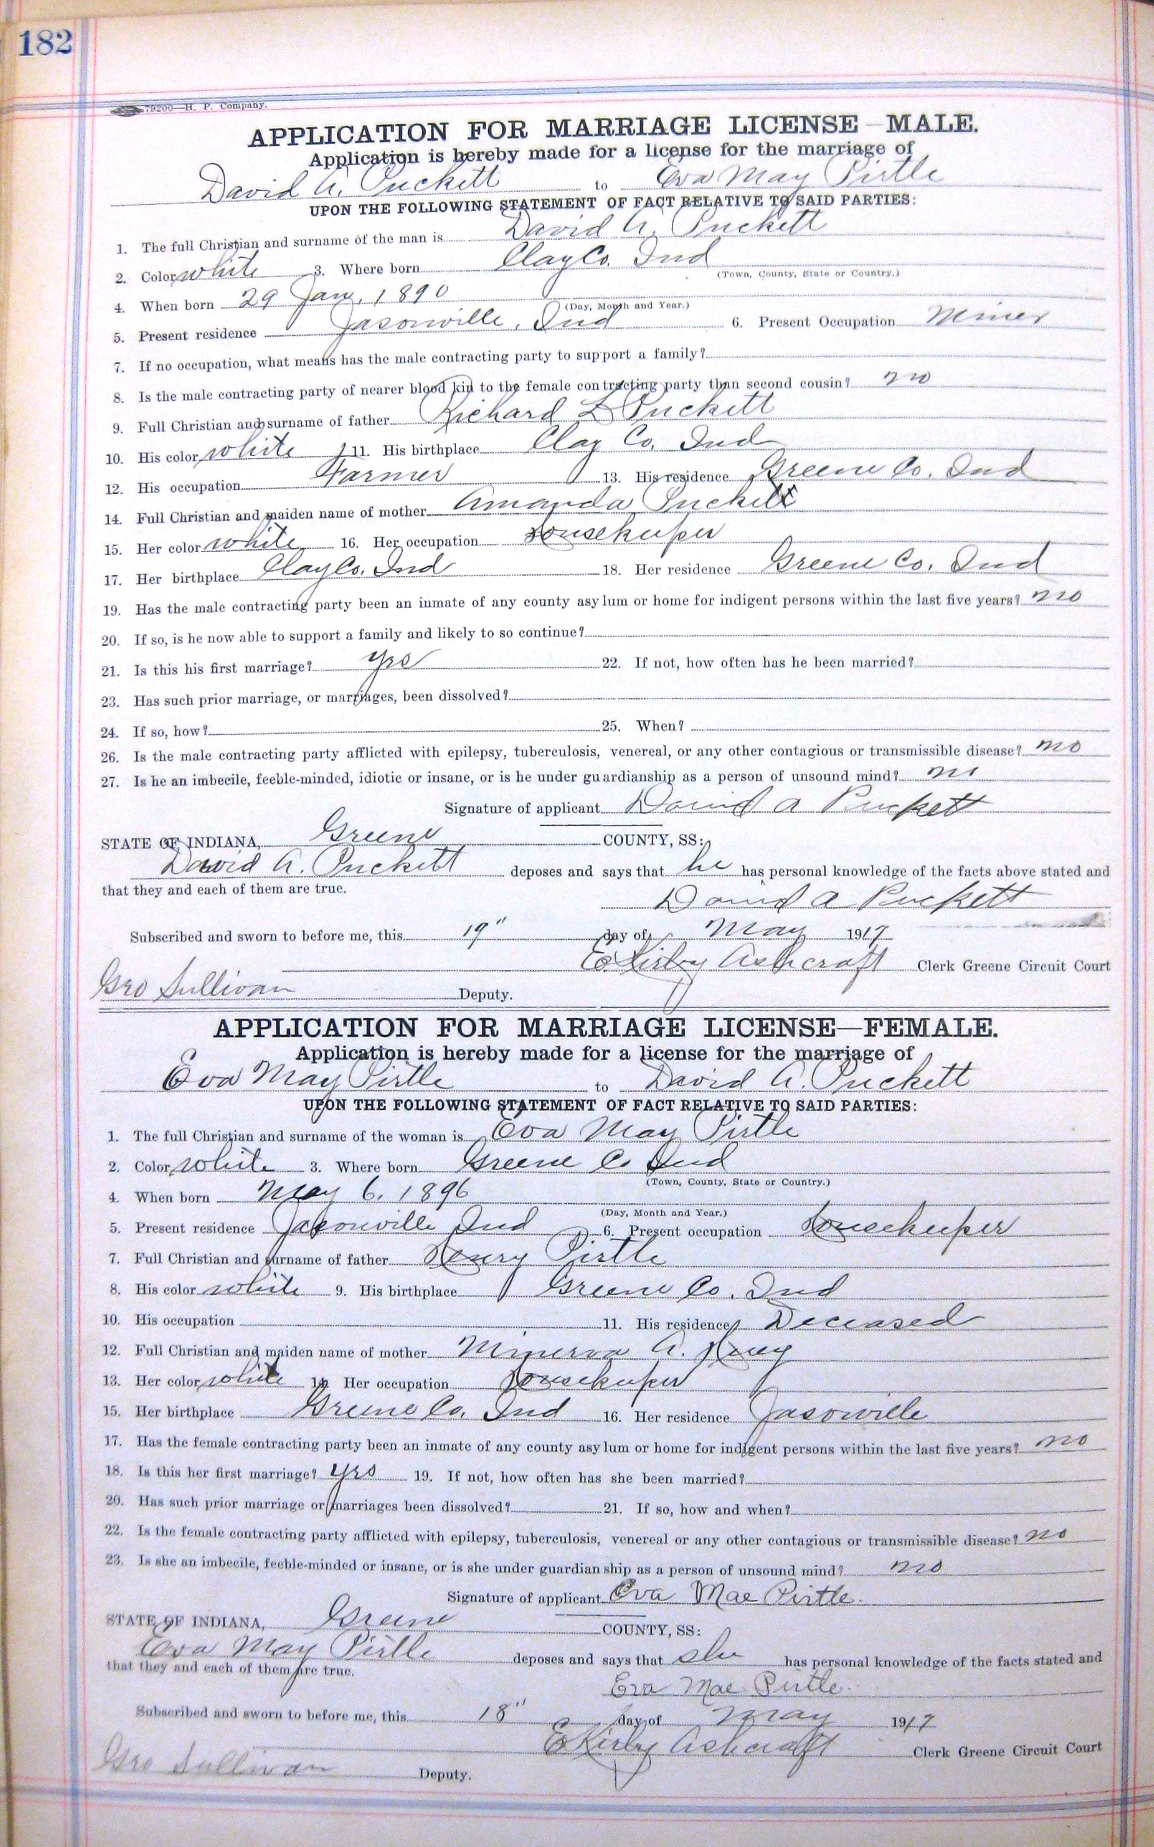 182
79200—H. P. Company.
APPLICATION FOR MARRIAGE LICENSE—MALE.
Application is hereby made for a license for the marriage of
David A. Puckett to Eva May Pirtle
UPON THE FOLLOWING STATEMENT OF FACT RELATIVE TO SAID PARTIES:
1. The full Christian and surname of the man is David A. Puckett
2. Color white 3. Where born Clay Co. Ind
(Town, County, State or Country.)
4. When born 29 Jan. 1890
(Day, Month and Year.)
5. Present residence Jasonville, Ind 6. Present Occupation Miner
7. If no occupation, what means has the male contracting party to support a family?
8. Is the male contracting party of nearer blood kin to the female contracting party than second cousin? no
9. Full Christian and surname of father Richard L Puckett
10. His color white 11. His birthplace Clay Co. Ind
12. His occupation Farmer 13. His residence Greene Co. Ind
14. Full Christian and maiden name of mother Amanda Puckett
15. Her color white 16. Her occupation Housekeeper
17. Her birthplace Clay Co. Ind 18. Her residence Greene Co. Ind
19. Has the male contracting party been an inmate of any county asylum or home for indigent persons within the last five years? no
20. If so, is he now able to support a family and likely to so continue?
21. Is this his first marriage? yes 22. If not, how often has he been married?
23. Has such prior marriage, or marriages, been dissolved?
24. If so, how? 25. When?
26. Is the male contracting party afflicted with epilepsy, tuberculosis, venereal, or any other contagious or transmissible disease? no
27. Is he an imbecile, feeble-minded, idiotic or insane, or is he under guardianship as a person of unsound mind? no
Signature of applicant David A Puckett
STATE OF INDIANA, Greene COUNTY, SS:
David A. Puckett deposes and says that he has personal knowledge of the facts above stated and
that they and each of them are true.
David A Puckett
Subscribed and sworn to before me, this 19" day of May 1917
E. Kirby Ashcraft Clerk Greene Circuit Court
Geo Sullivan Deputy.
APPLICATION FOR MARRIAGE LICENSE—FEMALE.
Application is hereby made for a license for the marriage of
Eva May Pirtle to David A. Puckett
UPON THE FOLLOWING STATEMENT OF FACT RELATIVE TO SAID PARTIES:
1. The full Christian and surname of the woman is Eva May Pirtle
2. Color white 3. Where born Greene Co Ind
(Town, County, State or Country.)
4. When born May 6, 1896
(Day, Month and Year.)
5. Present residence Jasonville Ind 6. Present occupation Housekeeper
7. Full Christian and surname of father Henry Pirtle
8. His color white 9. His birthplace Greene Co. Ind
10. His occupation 11. His residence Deceased
12. Full Christian and maiden name of mother Minerva A.
13. Her color white 14. Her occupation Housekeeper
15. Her birthplace Greene Co. Ind 16. Her residence Jasonville
17. Has the female contracting party been an inmate of any county asylum or home for indigent persons within the last five years? no
18. Is this her first marriage? yes 19. If not, how often has she been married?
20. Has such prior marriage or marriages been dissolved? 21. If so, how and when?
22. Is the female contracting party afflicted with epilepsy, tuberculosis, venereal or any other contagious or transmissible disease? no
23. Is she an imbecile, feeble-minded or insane, or is she under guardianship as a person of unsound mind? no
Signature of applicant Eva Mae Pirtle.
STATE OF INDIANA, Greene COUNTY, SS:
Eva May Pirtle deposes and says that she has personal knowledge of the facts stated and
that they and each of them are true.
Eva Mae Pirtle.
Subscribed and sworn to before me, this 18" day of May 1917
E Kirby Ashcraft Clerk Greene Circuit Court
Geo Sullivan Deputy.